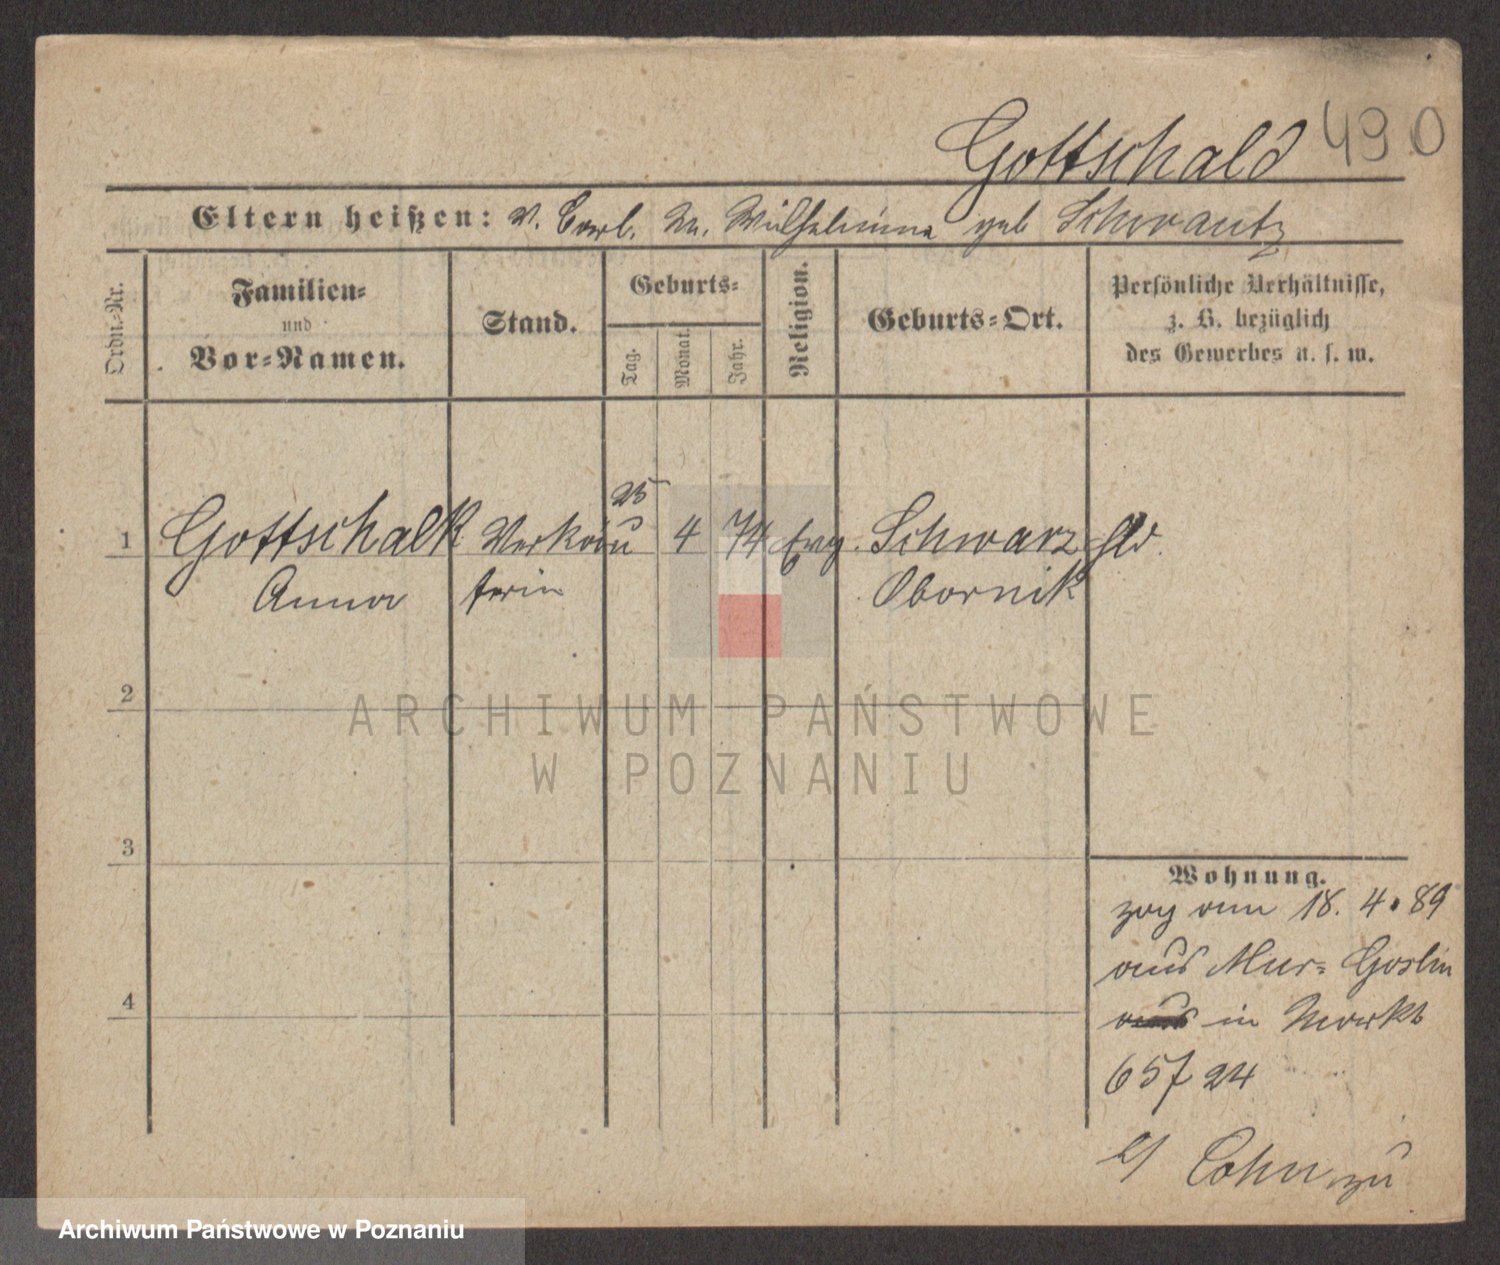 490
Gottschald
Eltern heißen: V. Carl. M. Wilhelmine geb Schwantz
Ordn.-Nr.
Familien-
und
Vor-Namen.
Stand.
Geburts-
Tag.
Monat.
Jahr.
Religion.
Geburts-Ort.
Persönliche Verhältnisse,
z. B. bezüglich
des Gewerbes u. s. w.
25
1 Gottschalk Verkäu 4 74 Evg. Schwarz
Anna ferin Obornik
2
ARCHIWUM PAŃSTWOWE
W POZNANIU
3
4
Wohnung.
zog am 18. 4. 89
aus Mur- Goslin
aus in Markt
65 24
b/ Cohn zu
Archiwum Państwowe w Poznaniu